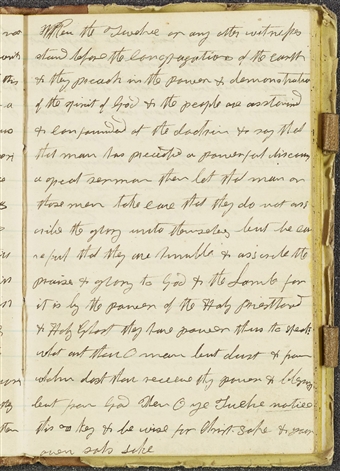 When the Twelve or any other witnesses
stand before the Congregations of the earth
& they preach in the power & demonstration
of the spirit of God & the people are asstonished
& confounded at the doctrin & say that
that man has preached a powerful discours
a great sermon then let that man or
those men take care that they do not ass
cribe the glory unto themselves but be ca
reful that they are humble & asscribe the
praise & glory to God & the Lamb for
it is by the power of the Holy Priesthood
& Holy Ghost they have power thus to speak
what art thou O man but dust & from
whom dost thou receive thy power & blessings
but from God Then O ye Twelve notice
this key & be wise for Christ sake & your
own souls sake